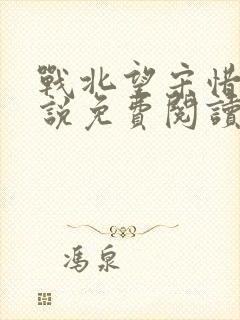 戰北望宋惜
說免費閱讀
馮泉